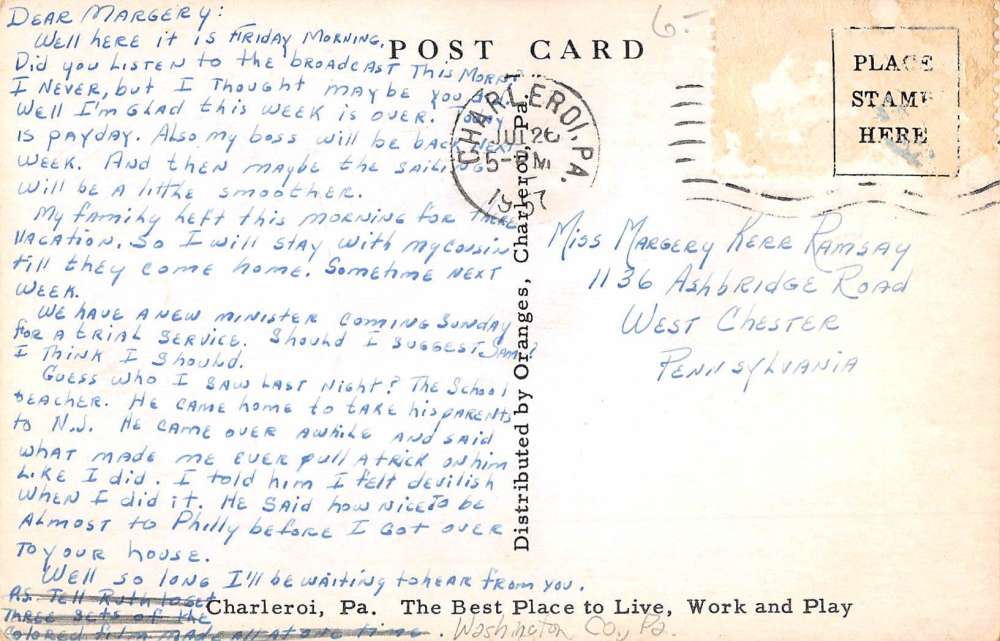 DEAR MARGERY:
Well HERE it is FRIDAY MORNING.
Did you Listen to the broadcast This Morn?
I NEVER, but I Thought maybe you
Well I'm GLAD this week is over. Today
is payday. Also my boss will be back NEXT
week. And then maybe the sailing
will be a little smoother.
My family left this morning for there
Vacation. So I will stay with my cousin
till they come home. Sometime NEXT
week.
We have a new minister coming Sunday
for a trial service. Should I suggest Sam?
I think I should.
Guess who I saw last night? The School
teacher. He came home to take his parents
to N.J. He came over awhile and said
what made me ever pull a trick on him
Like I did. I told him I felt devilish
when I did it. He said how nice to be
almost to Philly before I got over
to your house.
Well so long I'll be waiting to hear from you.
P.S. Tell Ruth to get
three sets of the
colored film made all at one time.
POST CARD
6-
PLACE
STAMP
HERE
CHARLEROI, PA.
JUL 26
5-PM
1957
Distributed by Oranges, Charleroi, Pa.
Miss Margery Kerr Ramsay
1136 Ashbridge Road
West Chester
Pennsylvania
Charleroi, Pa. The Best Place to Live, Work and Play
Washington Co., Pa.